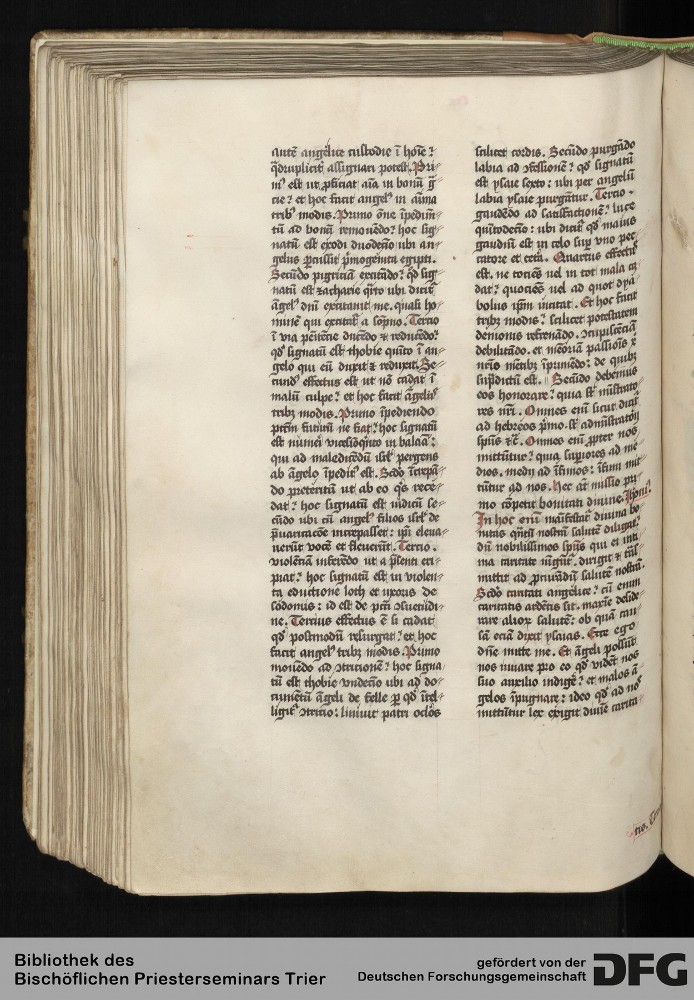 autē angelice custodie ī hoīe ?
q̄drupliciť assignari potest. Pri-
mꝰ est ut ꝓficiat aīa in bonū g̃-
cie ? et hoc facit angelꝰ in aīma
tribꝫ modis. Primo oīne īpedimē-
tū ad bonū remouēdo ? hoc sig-
natū est exodi duodeīo ubi an-
gelus ꝑcussit p̄mogenita egipti.
Secūdo pigriciā excitādo ? qď sig-
natū est zacharie q̄rto ubi diciť
āgelꝰ dn̄i excitauit me. quasi ho-
minē qui excitať a sōpno. Tercio
ī via penitēcie ducēdo ⁊ reducēdo ?
qď signatū est thobie quīto ī an-
gelo qui eū duxit ⁊ reduxit. Se-
cundꝰ effectus est ut nō cadat ī
malū culpe ? et hoc facit āgelꝰ
tribꝫ modis. Primo īpediendo
pctm̄ futurū ne fiat ? hoc signatū
est nūmeri vicesiōq̄nto in balaā ?
qui ad maledicēdū isrł pergens
ab āgelo īpeditꝰ est. Scďo īcrepā-
do preteritū ut ab eo q̄s rece-
dat ? hoc signatū est iudicū se-
cūdo ubi cū angelꝰ filios isrł de
p̄uaricacōe increpasset : ip̄i eleua-
uerūt vocē et fleuerūt. Tercio.
violētiā inferēdo ut a p̄senti eri-
piat ? hoc signatū est in violen-
ta eductione loth et uxoris de
sodomis : id est de pctī ꝯsuetudi-
ne. Tercius effectus ē si cadat
qď postmodū resurgat ? et hoc
facit angelꝰ tribꝫ modis. Primo
mouēdo ad ꝯtricionē ? hoc signa-
tū est thobie vndecīo ubi ad do-
cumētū āgeli de felle ꝑ qď ītel-
ligiť ꝯtricio : liniuit patri oclōs
scilicet cordis. Secūdo purgādo
labia ad ꝯfessionē ? qď signatū
est ysaie sexto : ubi per angelū
labia ysaie purgātur. Tercio.
gaudēdo ad satisfactionē ? luce
quītodecīo : ubi diciť qď maius
gaudiū est in celo suꝑ vno pec-
catore et cetā. Quartus effectꝰ
est. ne tociēs uel in tot mala ca-
dat ? quociēs uel ad quot dya-
bolus ip̄m incitat. Et hoc facit
tribꝫ modis ? scilicet potestatem
demonis refrenādo. ꝯcupiscēciā
debilitādo. et memoriā passionis x̄
nr̄is mētibꝫ īprimēdo : de quibꝫ
sup̄dictū est. Secūdo debemus
eos honorare ? quia sť mīstrato-
res nr̄i. Omnes enī sicut diciť
ad hebreos p̄mo. sť admīstratorii
spūs ⁊ē. Omnes enī ꝓpter nos
mittūtur ? quia suꝑiores ad me-
dios. medii ad īfimos : īfimi mit-
tūtur ad nos. Hec āt missio pri-
mo cōpetit bonitati diuine.
In hoc enī manifestať diuina bo-
nitas q̄ntū nostrā salutē diligat ?
dū nobilissimos spūs qui ei inti-
ma caritate iūgūť. dirigit ⁊
mittit ad ꝓcurādū salutē nostrā.
Scďo caritati angelice ? cū enim
caritatis ardētis sit. maxīe deside-
rare alioꝝ salutē : ob quā cau-
sā eciā dixit ysaias. Ecce ego
dn̄e mitte me. Et āgeli possūt
nos iuuare pro eo qď vidēt nos
suo auxilio indigē ? et malos ā-
gelos īpugnare : ideo qď ad nos
mittūtur lex exigit diuīe carita-
Bibliothek des
Bischöflichen Priesterseminars Trier
gefördert von der
Deutschen Forschungsgemeinschaft
DFG